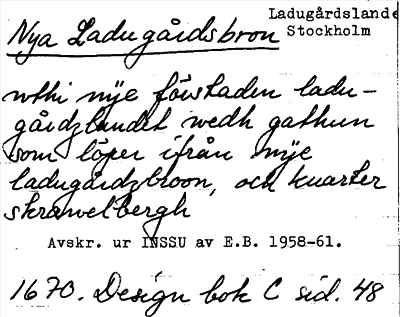 Nya Ladugårdsbron
Ladugårdslande
Stockholm
wthi nÿe förstaden ladu-
gårdzlandet wedh gathun
som löper ifrån nÿe
ladugårdzbroon, och kuarter
skrawelbergh
Avskr. ur INSSU av E.B. 1958-61.
1670. Design bok C sid. 48